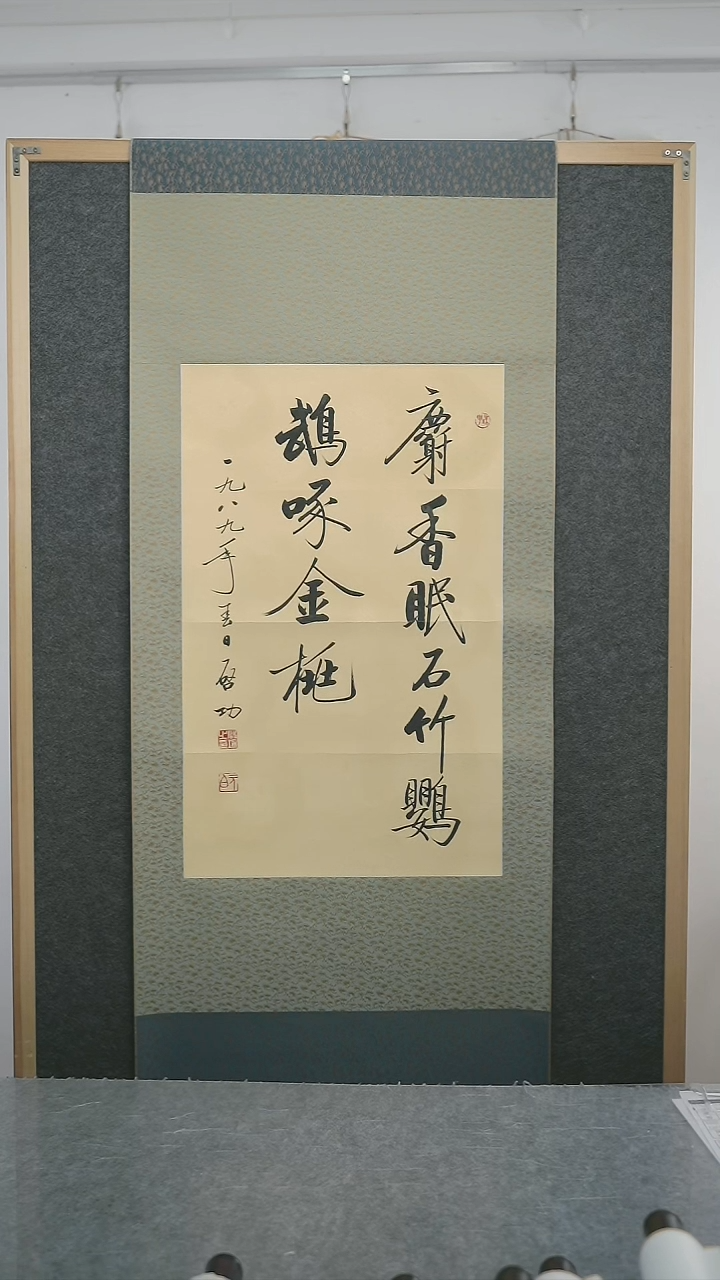 麝香眠石竹鸚
鵡啄金桃
一九八九年春日啓功
元白